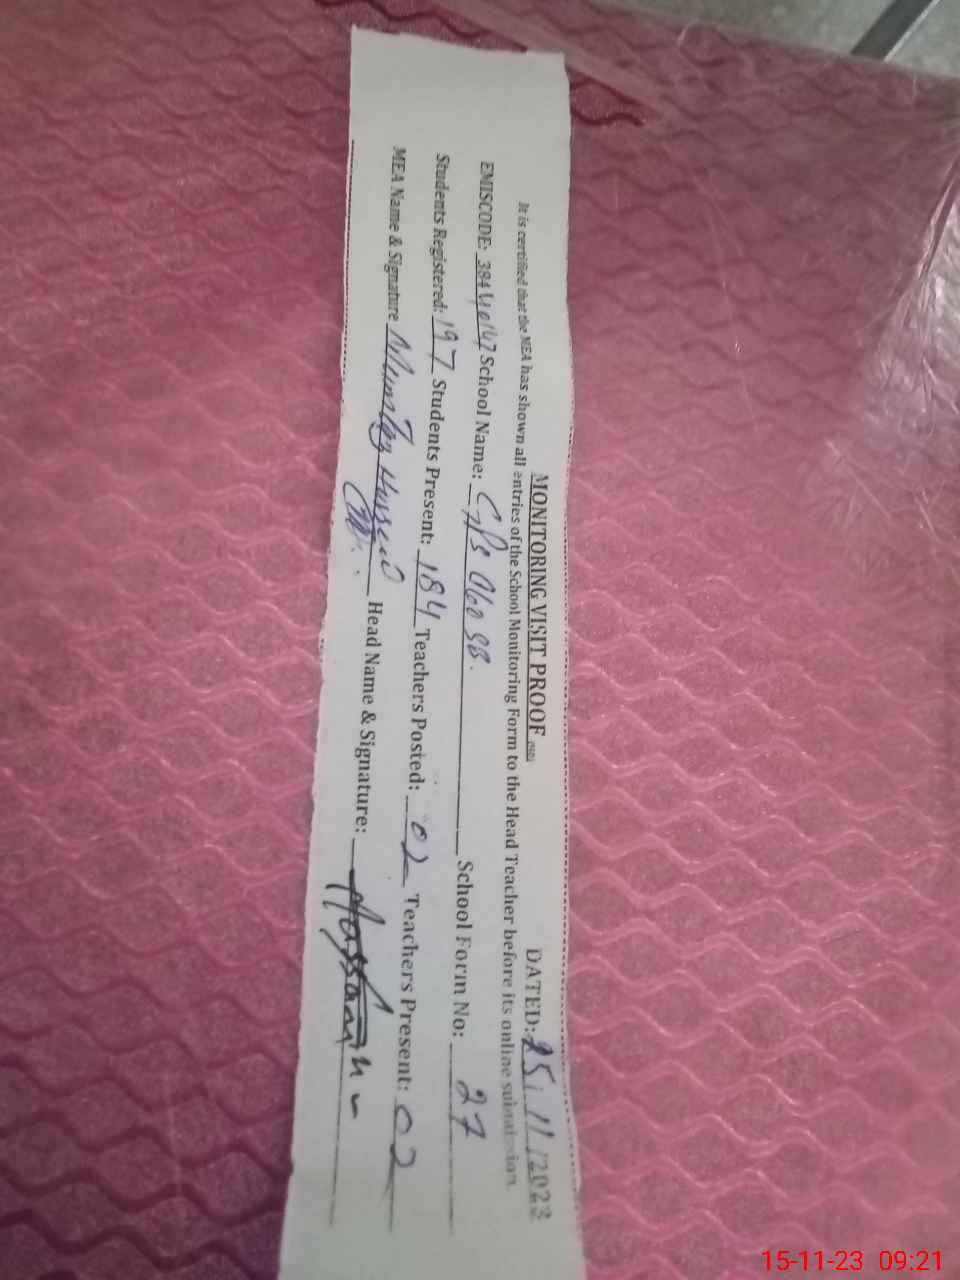 MONITORING VISIT PROOF DATED: 15/11/2023
It is certified that the MEA has shown all entries of the School Monitoring Form to the Head Teacher before its online submission
EMISCODE: School Name: GPS School Form No: 27
Students Registered: 197 Students Present: 184 Teachers Posted: 02 Teachers Present: 02
MEA Name & Signature Mumtaz Hussain Head Name & Signature:
15-11-23 09:21